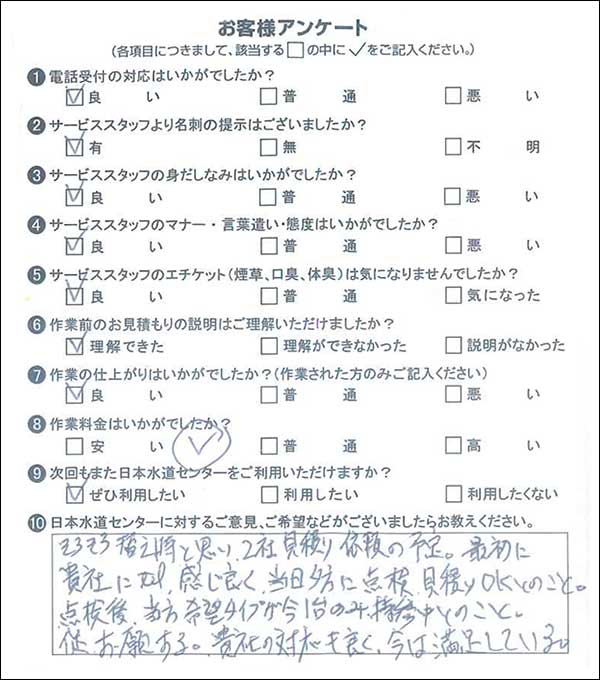 お客様アンケート
(各項目につきまして、該当する□の中に✓をご記入ください。)
❶電話受付の対応はいかがでしたか?
☑良い □普通 □悪い
❷サービススタッフより名刺の提示はございましたか?
☑有 □無 □不明
❸サービススタッフの身だしなみはいかがでしたか?
☑良い □普通 □悪い
❹サービススタッフのマナー・言葉遣い・態度はいかがでしたか?
☑良い □普通 □悪い
❺サービススタッフのエチケット(煙草、口臭、体臭)は気になりませんでしたか?
☑良い □普通 □気になった
❻作業前のお見積もりの説明はご理解いただけましたか?
☑理解できた □理解ができなかった □説明がなかった
❼作業の仕上がりはいかがでしたか?(作業された方のみご記入ください)
☑良い □普通 □悪い
❽作業料金はいかがでしたか?
□安い ✓ □普通 □高い
❾次回もまた日本水道センターをご利用いただけますか?
☑ぜひ利用したい □利用したい □利用したくない
❿日本水道センターに対するご意見、ご希望などがございましたらお教えください。
そろそろ替え時と思い、2社見積り依頼の予定。最初に
貴社に 感じ良く、当日夕方に点検、見積りOKとのこと。
点検後、当方希望タイプが今1台のみ 中とのこと。
お願いする。貴社の対応も良く、今は満足している。